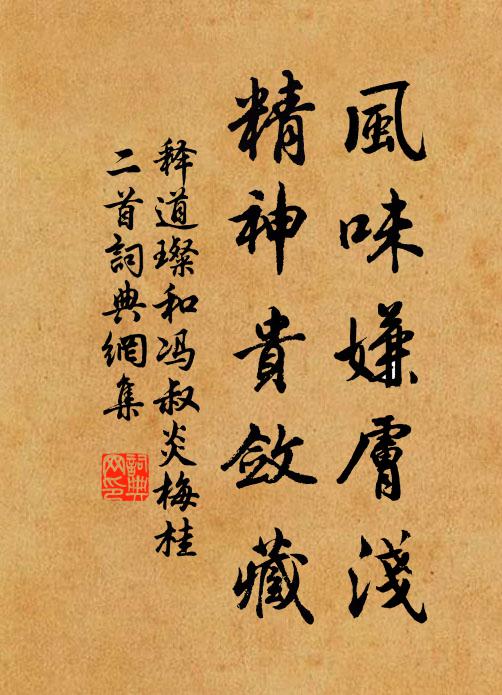 風味嫌膚淺
精神貴斂藏
释道璨和冯叔炎梅桂
二首詞典網集
詞典
网印